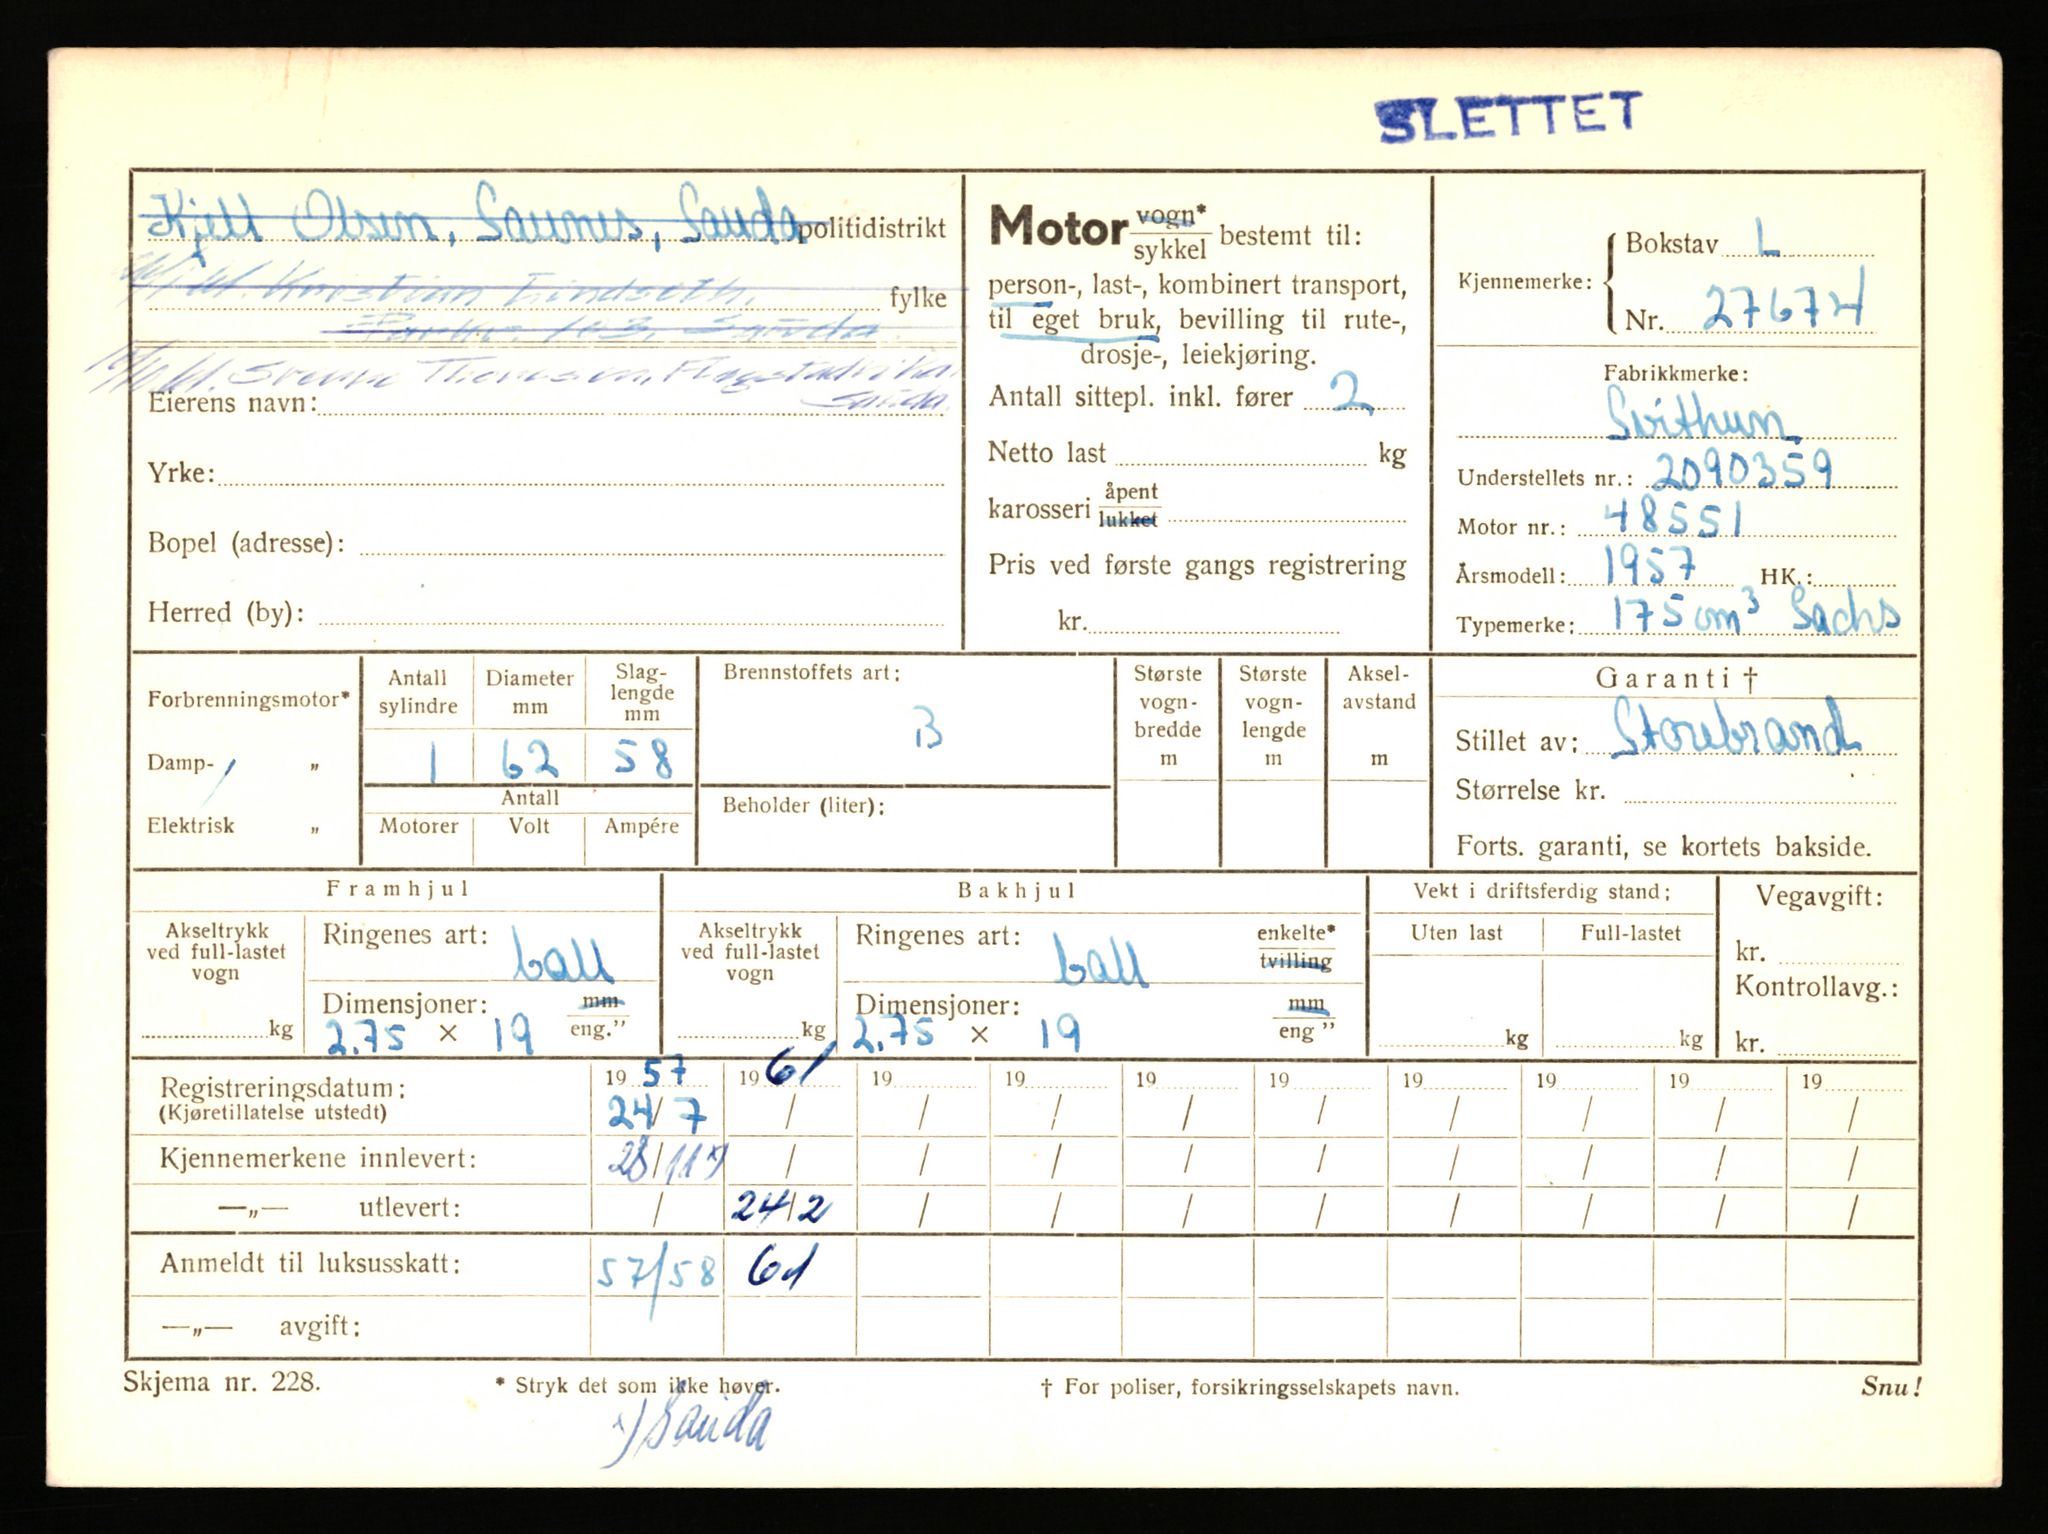 SLETTET
Kjell Olsen, Saunes, Sauda politidistrikt
Kristian Lindseth, fylke
103, Sauda
Svenn
Sauda.
Eierens navn:
Yrke:
Bopel (adresse):
Herred (by):
Motor vogn* / sykkel bestemt til:
person-, last-, kombinert transport,
til eget bruk, bevilling til rute-,
drosje-, leiekjøring.
Antall sittepl. inkl. fører 2
Netto last kg
karosseri åpent / lukket
Pris ved første gangs registrering
kr.
Kjennemerke: Bokstav L
Nr. 27674
Fabrikkmerke:
Svithun
Understellets nr.: 2090359
Motor nr.: 48551
Årsmodell: 1957 HK.:
Typemerke: 175 cm³ Sachs
Forbrenningsmotor*
Damp- „
Elektrisk „
Antall sylindre 1
Diameter mm 62
Slag-lengde mm 58
Antall
Motorer Volt Ampére
Brennstoffets art: B
Beholder (liter):
Største vogn-bredde m
Største vogn-lengde m
Aksel-avstand m
Garanti †
Stillet av: Storebrand
Størrelse kr.
Forts. garanti, se kortets bakside.
Framhjul
Akseltrykk ved full-lastet vogn kg
Ringenes art: ball
Dimensjoner: mm / eng."
2.75 × 19
Bakhjul
Akseltrykk ved full-lastet vogn kg
Ringenes art: ball enkelte* / tvilling
Dimensjoner: mm / eng "
2.75 × 19
Vekt i driftsferdig stand:
Uten last Full-lastet
kg kg
Vegavgift:
kr.
Kontrollavg.:
kr.
Registreringsdatum: 19 57 19 61 19 19 19 19 19 19 19 19
(Kjøretillatelse utstedt) 24/7 / / / / / / / / /
Kjennemerkene innlevert: 28/11 x) / / / / / / / / /
—„— utlevert: / 24/2 / / / / / / / /
Anmeldt til luksusskatt: 57/58 61
—„— avgift:
Skjema nr. 228. * Stryk det som ikke høver. † For poliser, forsikringsselskapets navn. Snu!
x) Sauda